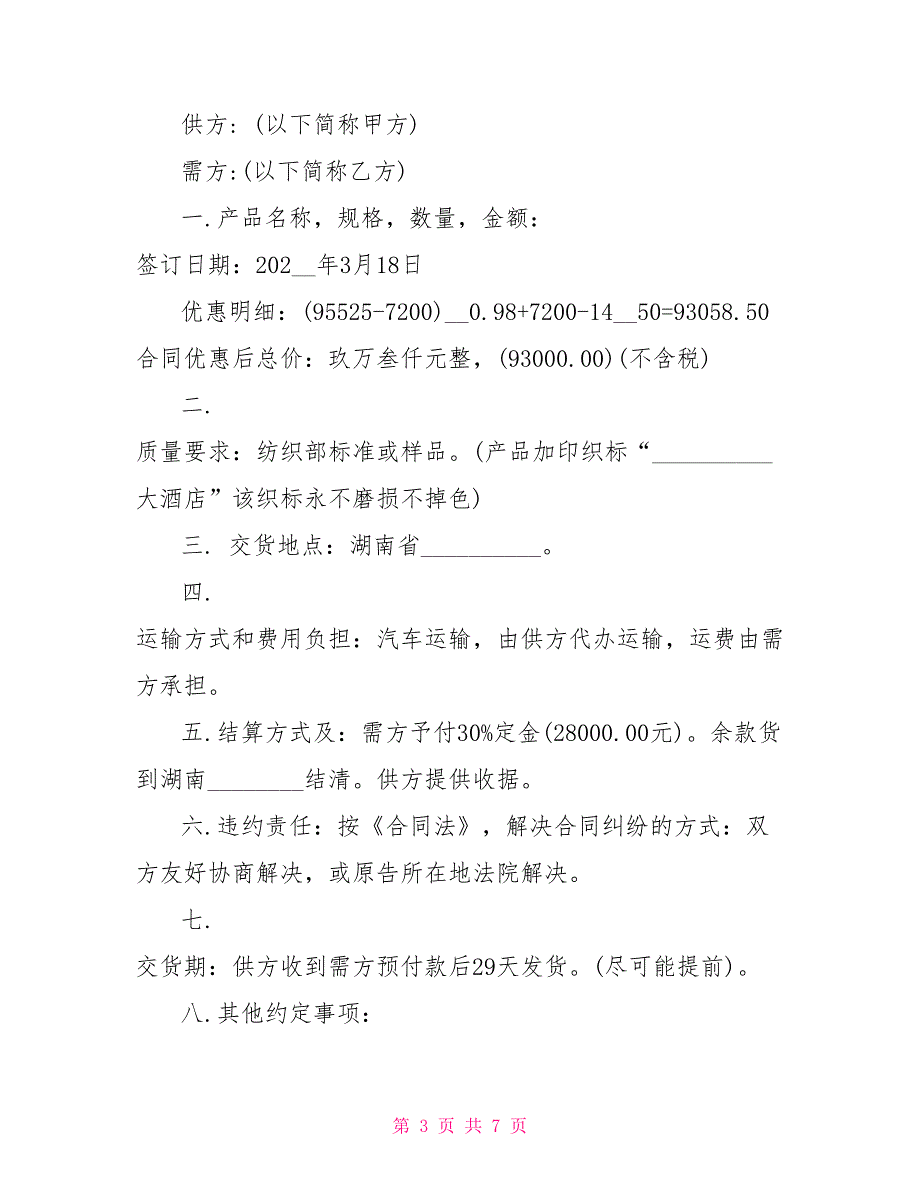 供方: (以下简称甲方)
需方:(以下简称乙方)
一.产品名称，规格，数量，金额：
签订日期：202__年3月18日
优惠明细：(95525-7200)__0.98+7200-14__50=93058.50
合同优惠后总价：玖万叁仟元整，(93000.00)(不含税)
二.
质量要求：纺织部标准或样品。(产品加印织标“__________
大酒店”该织标永不磨损不掉色)
三. 交货地点：湖南省__________。
四.
运输方式和费用负担：汽车运输，由供方代办运输，运费由需
方承担。
五.结算方式及：需方予付30%定金(28000.00元)。余款货
到湖南________结清。供方提供收据。
六.违约责任：按《合同法》，解决合同纠纷的方式：双
方友好协商解决，或原告所在地法院解决。
七.
交货期：供方收到需方预付款后29天发货。(尽可能提前)。
八.其他约定事项：
第 3 页 共 7 页